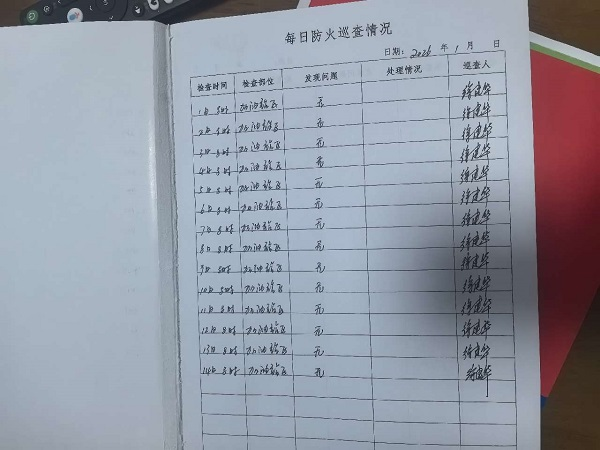 每日防火巡查情况
日期: 2026 年 1 月 日
检查时间 检查部位 发现问题 处理情况 巡查人
1日 8时 加油站区 无 徐建华
2日 8时 加油站区 无 徐建华
3日 8时 加油站区 无 徐建华
4日 8时 加油站区 无 徐建华
5日 8时 加油站区 无 徐建华
6日 8时 加油站区 无 徐建华
7日 8时 加油站区 无 徐建华
8日 8时 加油站区 无 徐建华
9日 8时 加油站区 无 徐建华
10日 8时 加油站区 无 徐建华
11日 8时 加油站区 无 徐建华
12日 8时 加油站区 无 徐建华
13日 8时 加油站区 无 徐建华
14日 8时 加油站区 无 徐建华